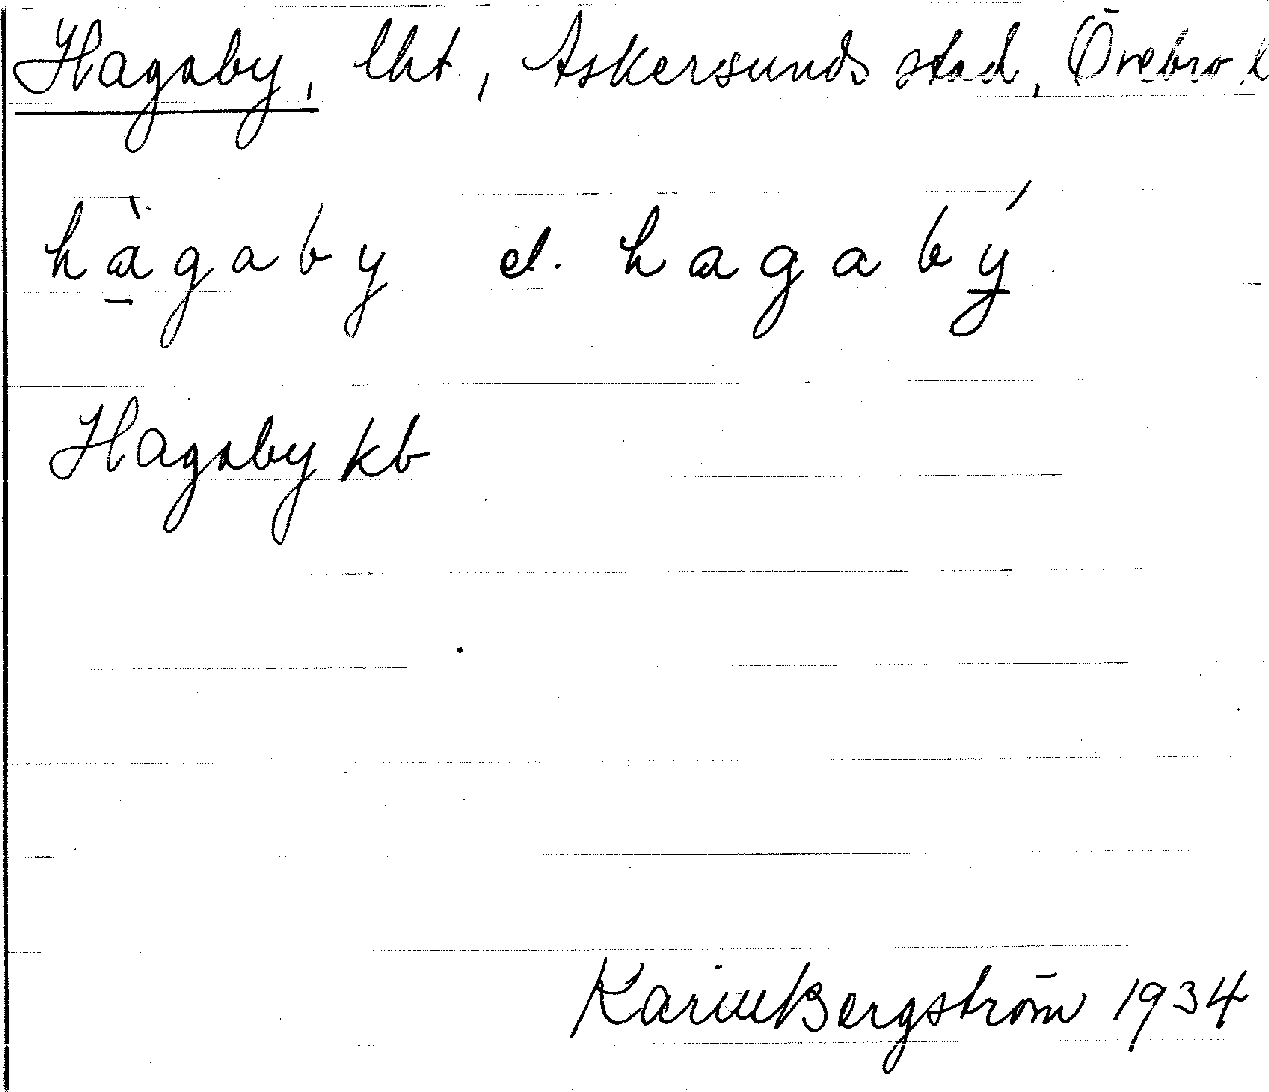 Hagaby, lht, Askersunds stad, Örebro l
hàgaby el. hagabý
Hagaby kb
Karin Bergström 1934